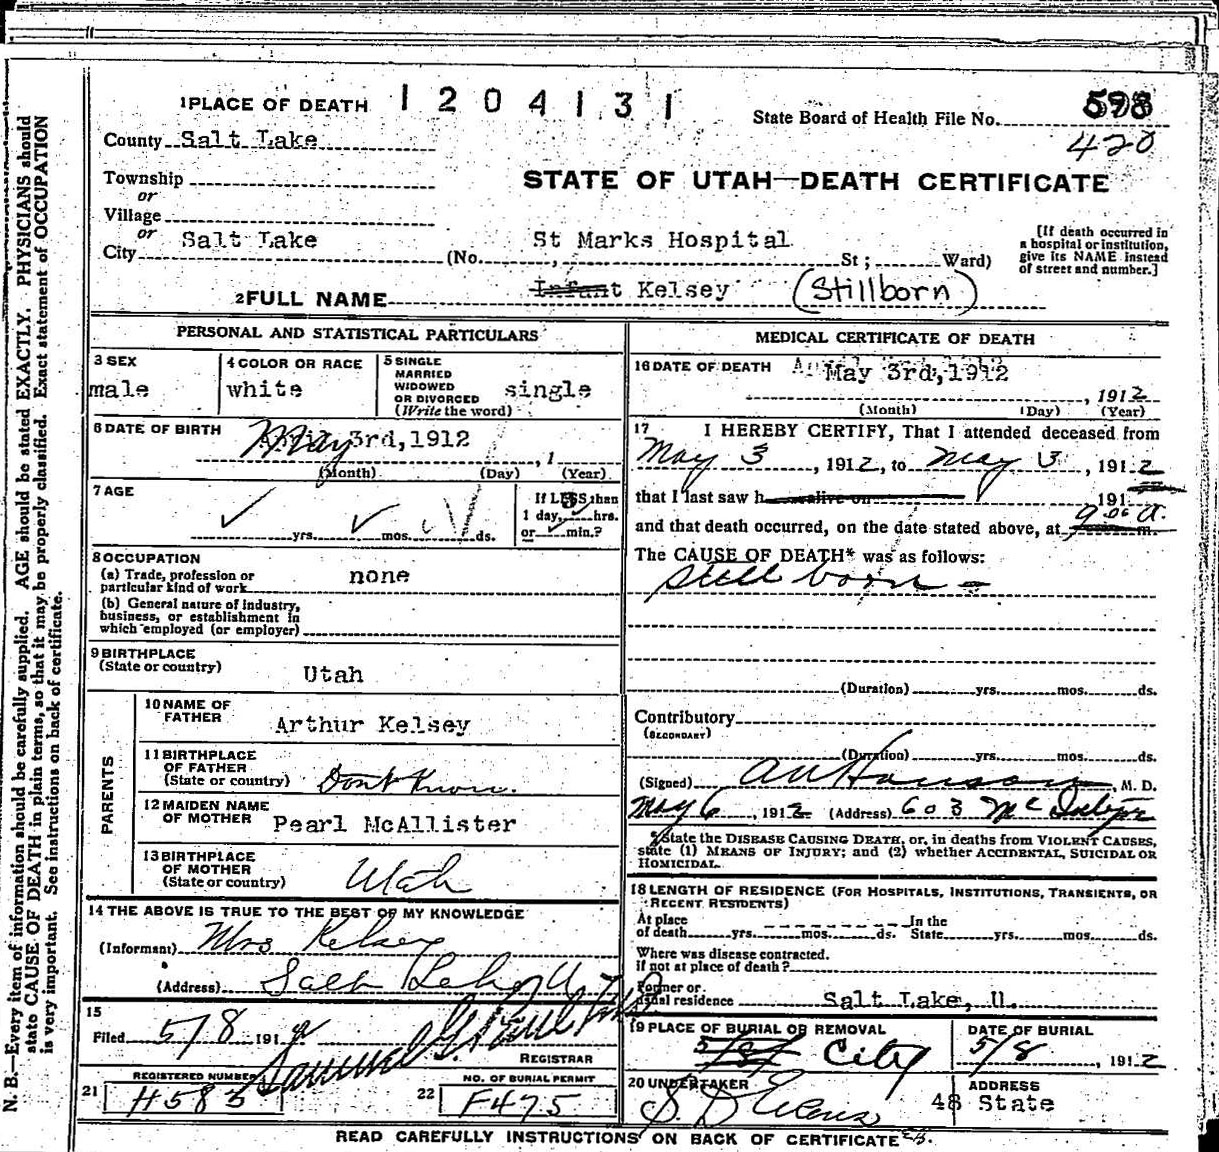 1 PLACE OF DEATH 1204131
State Board of Health File No. 598
420
County Salt Lake
Township
or
Village
or
City Salt Lake
STATE OF UTAH—DEATH CERTIFICATE
(No. St Marks Hospital St; Ward)
[If death occurred in
a hospital or institution,
give its NAME instead
of street and number.]
2 FULL NAME Infant Kelsey (Stillborn)
PERSONAL AND STATISTICAL PARTICULARS
3 SEX
male
4 COLOR OR RACE
white
5 SINGLE
MARRIED
WIDOWED
OR DIVORCED
(Write the word)
single
6 DATE OF BIRTH May 3rd, 1912
, 1
(Month) (Day) (Year)
7 AGE
yrs. mos. ds.
If LESS than
1 day, hrs.
or min.?
8 OCCUPATION
(a) Trade, profession or
particular kind of work none
(b) General nature of industry,
business, or establishment in
which employed (or employer)
9 BIRTHPLACE
(State or country) Utah
PARENTS
10 NAME OF
FATHER Arthur Kelsey
11 BIRTHPLACE
OF FATHER
(State or country) Dont Know.
12 MAIDEN NAME
OF MOTHER Pearl McAllister
13 BIRTHPLACE
OF MOTHER
(State or country) Utah
14 THE ABOVE IS TRUE TO THE BEST OF MY KNOWLEDGE
(Informant) Mrs Kelsey
(Address) Salt Lake U
15
Filed 5/8 191
Samuel G. Paul
REGISTRAR
21 REGISTERED NUMBER
H583
22 NO. OF BURIAL PERMIT
F475
MEDICAL CERTIFICATE OF DEATH
16 DATE OF DEATH May 3rd, 1912
, 1912
(Month) (Day) (Year)
17 I HEREBY CERTIFY, That I attended deceased from
May 3, 1912, to May 3, 1912
that I last saw h alive on 191
and that death occurred, on the date stated above, at 9 06 a. m.
The CAUSE OF DEATH* was as follows:
Still born
(Duration) yrs. mos. ds.
Contributory
(SECONDARY)
(Duration) yrs. mos. ds.
(Signed) , M. D.
May 6, 1912 (Address) 603
* State the DISEASE CAUSING DEATH, or, in deaths from VIOLENT CAUSES,
state (1) MEANS OF INJURY; and (2) whether ACCIDENTAL, SUICIDAL OR
HOMICIDAL.
18 LENGTH OF RESIDENCE (FOR HOSPITALS, INSTITUTIONS, TRANSIENTS, OR
RECENT RESIDENTS)
At place In the
of death yrs. mos. ds. State yrs. mos. ds.
Where was disease contracted.
if not at place of death?
Former or
usual residence Salt Lake, U.
19 PLACE OF BURIAL OR REMOVAL
5/8/ City
DATE OF BURIAL
5/8, 1912
20 UNDERTAKER
S. D Evans
ADDRESS
48 State
READ CAREFULLY INSTRUCTIONS ON BACK OF CERTIFICATE
N. B.—Every item of information should be carefully supplied. AGE should be stated EXACTLY. PHYSICIANS should
state CAUSE OF DEATH in plain terms, so that it may be properly classified. Exact statement of OCCUPATION
is very important. See instructions on back of certificate.